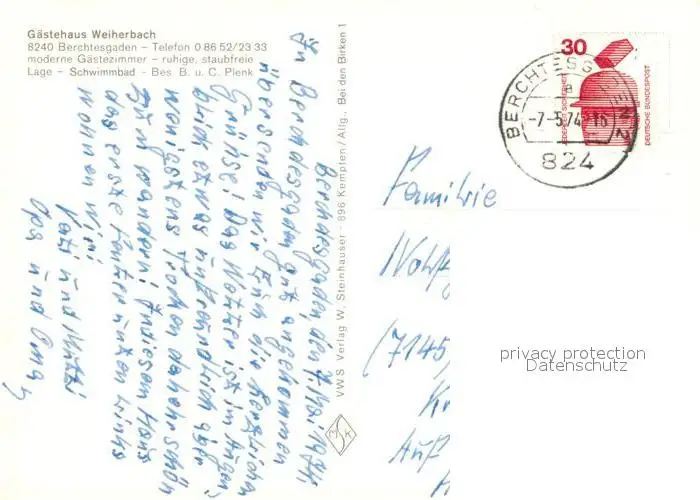 Gästehaus Weiherbach
8240 Berchtesgaden – Telefon 0 86 52/23 33
moderne Gästezimmer – ruhige, staubfreie
Lage – Schwimmbad – Bes. B. u. C. Plenk
Berchtesgaden, den 7. Mai 1974.
In Berchtesgaden gut angekommen
übersenden wir Euch die herzlichen
Grüße! Das Wetter ist im Augen-
blick etwas unfreundlich aber
wenigstens Trocken daher schön
wandern! In diesem Haus
das erste Fenster unten links
wohnen wir!
Vati und Mutti
Opa und Oma
VWS Verlag W. Steinhauser - 896 Kempten/Allg., Bei den Birken 1
MSK
30
JEDERZEIT SICHERHEIT
DEUTSCHE BUNDESPOST
BERCHTESGADEN 2
a
-7.-5.74.-16
824
Familie
(7145)
privacy protection
Datenschutz